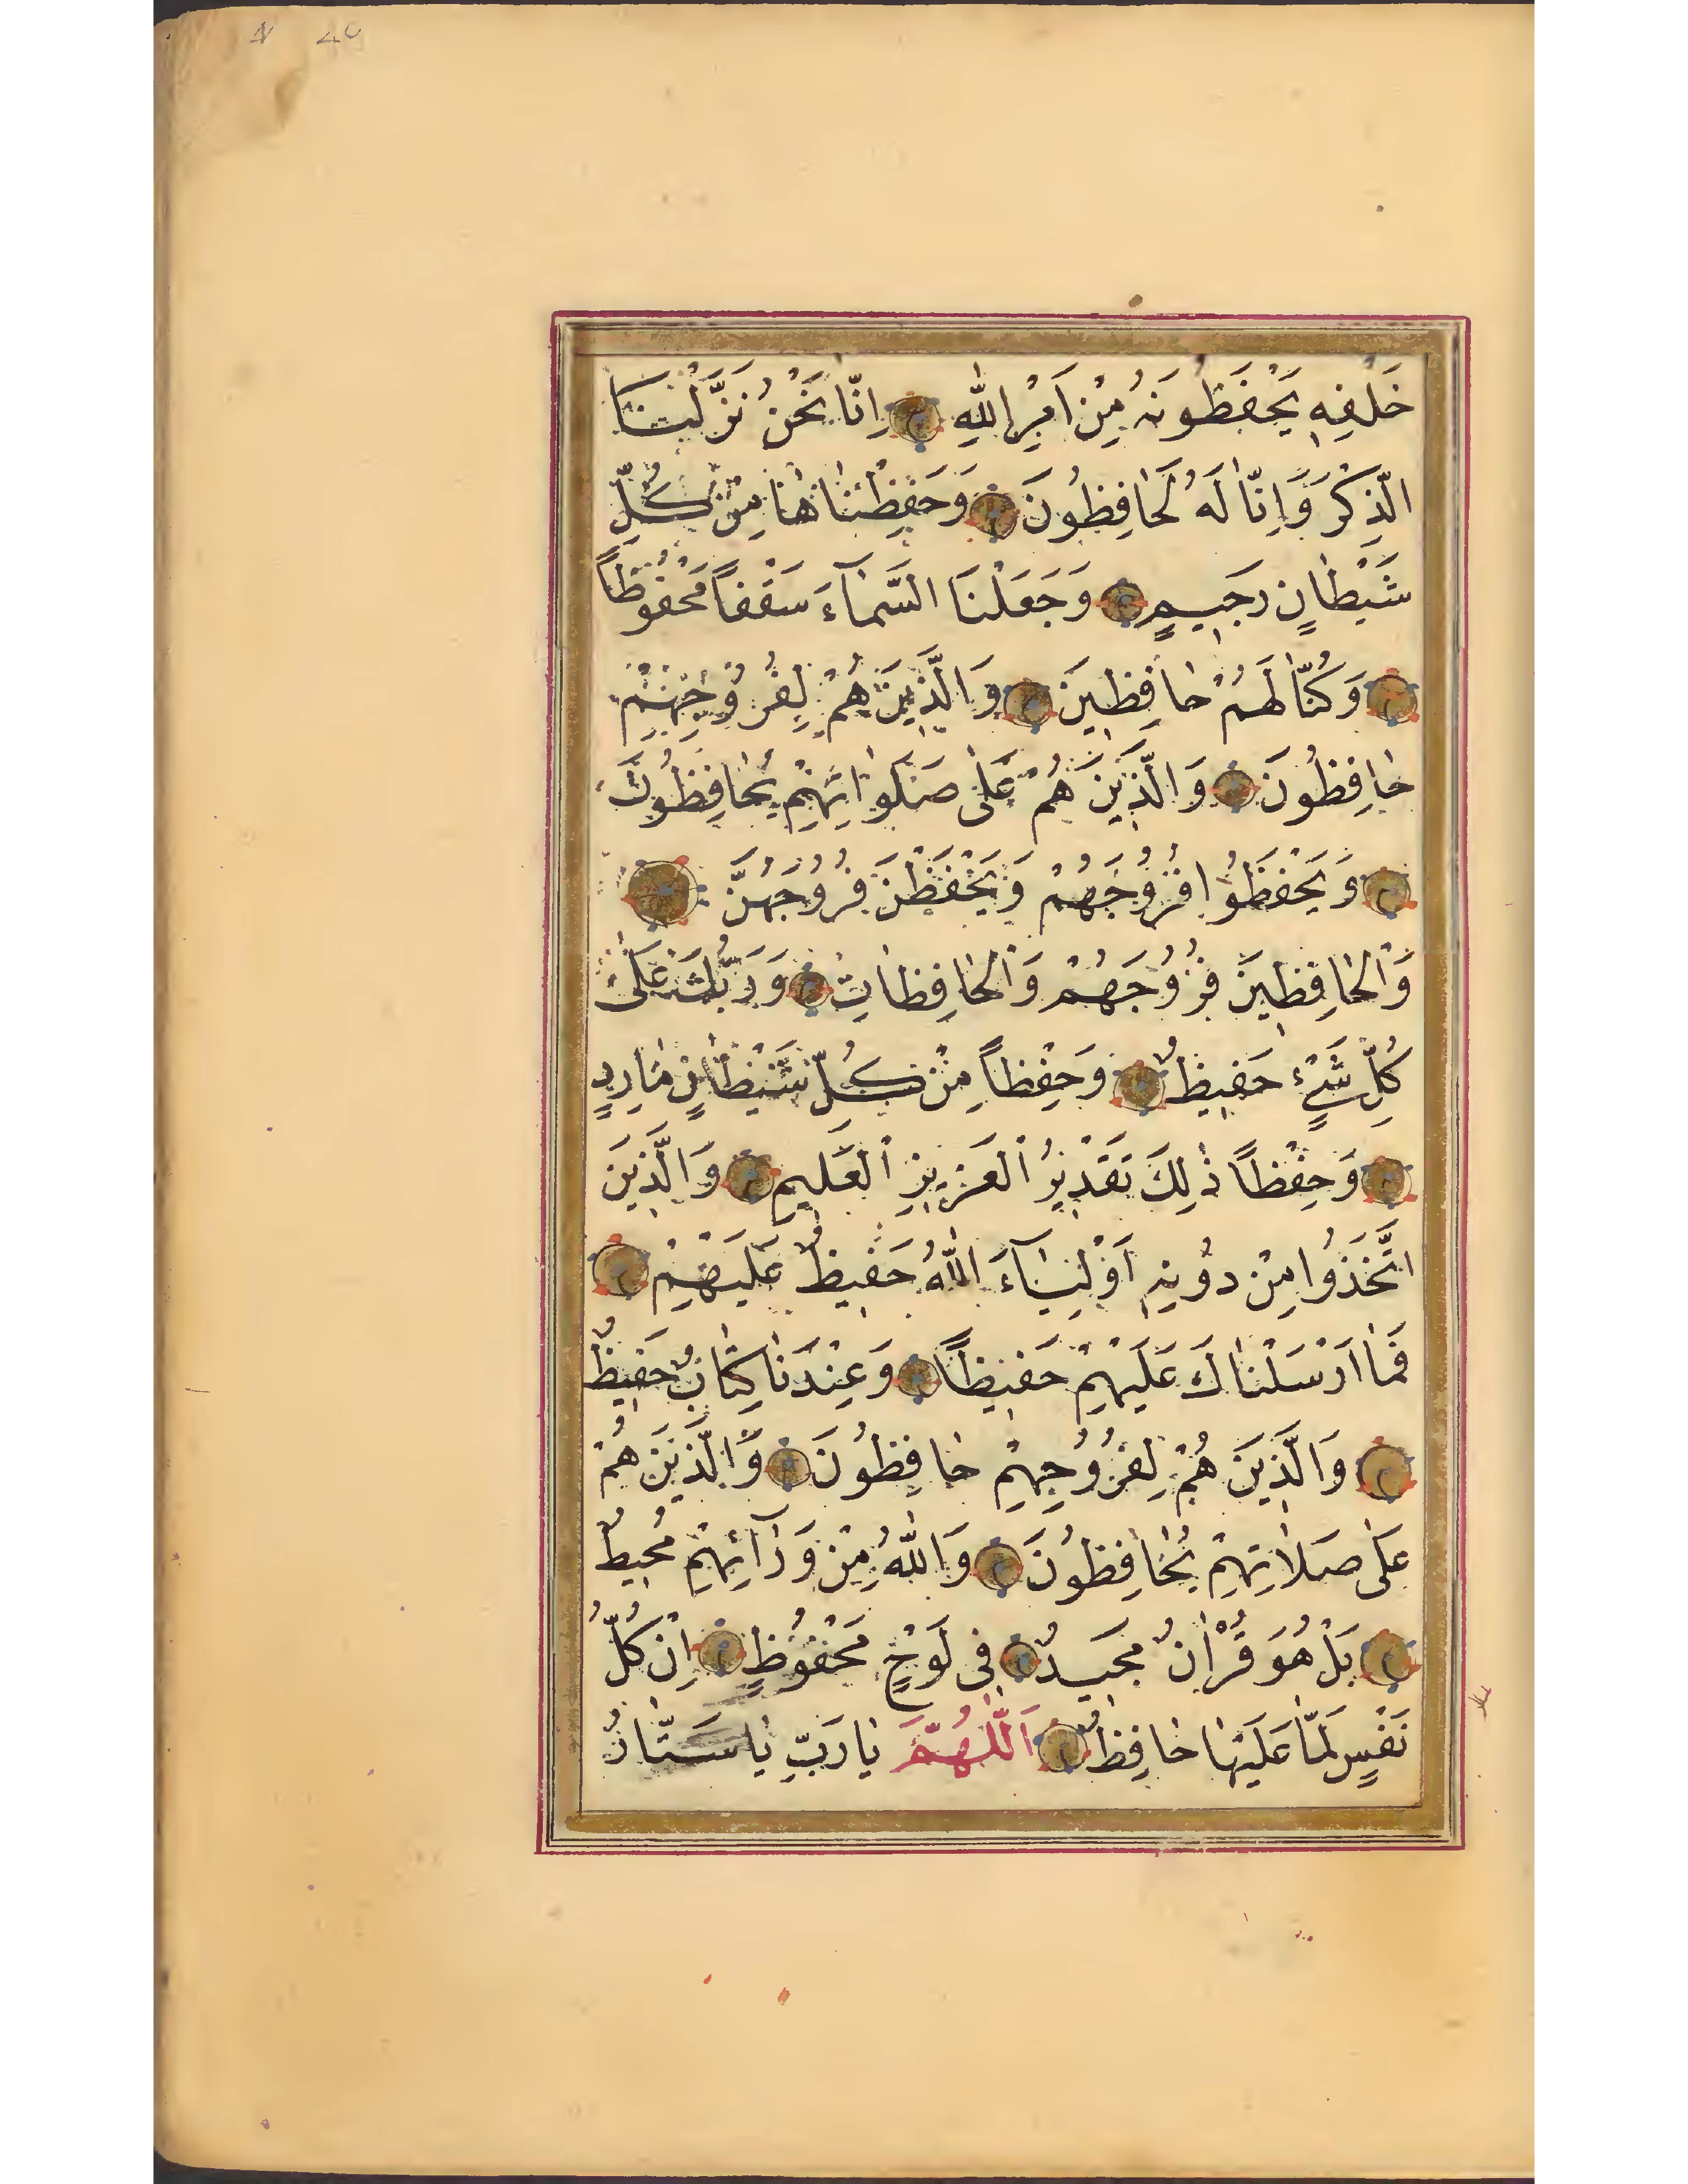 خَلْفِهِ يَحْفَظُونَهُ مِنْ اَمْرِ اللّٰهِ اِنَّا نَحْنُ نَزَّلْنَا
الذِّكْرَ وَاِنَّا لَهُ لَحَافِظُونَ وَحَفِظْنَاهَا مِنْ كُلِّ
شَيْطَانٍ رَجِيمٍ وَجَعَلْنَا السَّمَآءَ سَقْفًا مَحْفُوظًا
وَكُنَّا لَهُمْ حَافِظِينَ وَالَّذِينَ هُمْ لِفُرُوجِهِمْ
حَافِظُونَ وَالَّذِينَ هُمْ عَلٰى صَلَوَاتِهِمْ يُحَافِظُونَ
وَيَحْفَظُوا فُرُوجَهُمْ وَيَحْفَظْنَ فُرُوجَهُنَّ
وَالْحَافِظِينَ فُرُوجَهُمْ وَالْحَافِظَاتِ وَرَبُّكَ عَلٰى
كُلِّ شَيْءٍ حَفِيظٌ وَحِفْظًا مِنْ كُلِّ شَيْطَانٍ مَارِدٍ
وَحِفْظًا ذٰلِكَ تَقْدِيرُ الْعَزِيزِ الْعَلِيمِ وَالَّذِينَ
اتَّخَذُوا مِنْ دُونِهِ اَوْلِيَآءَ اللّٰهُ حَفِيظٌ عَلَيْهِمْ
فَمَا اَرْسَلْنَاكَ عَلَيْهِمْ حَفِيظًا وَعِنْدَنَا كِتَابٌ حَفِيظٌ
وَالَّذِينَ هُمْ لِفُرُوجِهِمْ حَافِظُونَ وَالَّذِينَ هُمْ
عَلٰى صَلَاتِهِمْ يُحَافِظُونَ وَاللّٰهُ مِنْ وَرَآئِهِمْ مُحِيطٌ
بَلْ هُوَ قُرْاٰنٌ مَجِيدٌ فِى لَوْحٍ مَحْفُوظٍ اِنْ كُلُّ
نَفْسٍ لَمَّا عَلَيْهَا حَافِظٌ اَللّٰهُمَّ يَا رَبِّ يَا سَتَّارُ